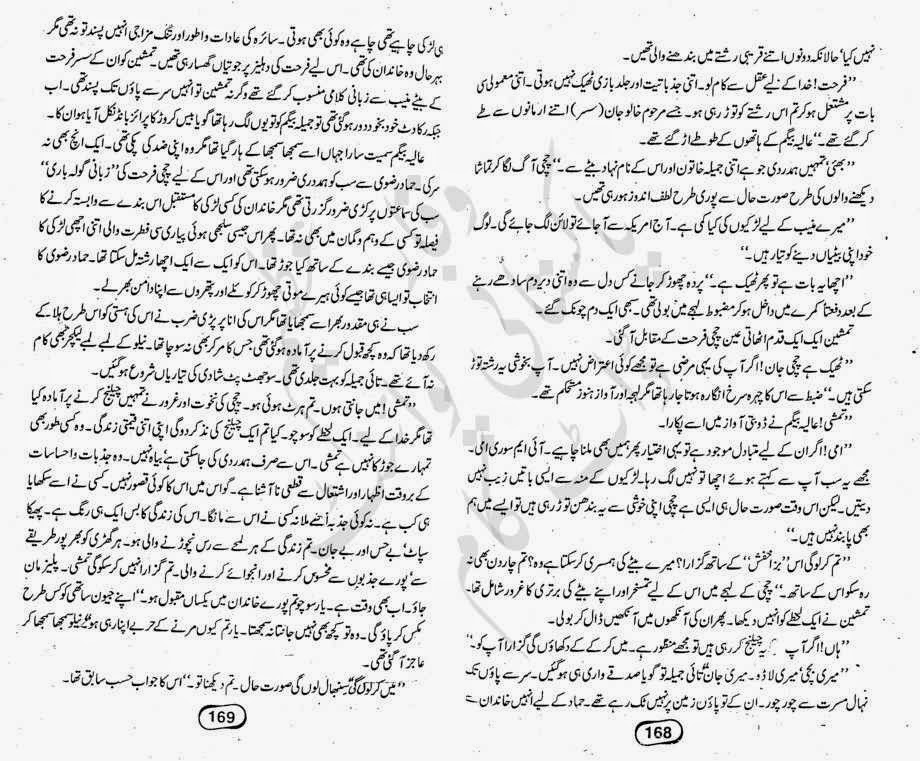 نہیں کیا، حالانکہ دونوں اتنے قریبی رشتے میں بندھنے والی تھیں۔
"فرحت! خدا کے لیے عقل سے کام لو۔ اتنی جذباتیت اور جلد بازی ٹھیک نہیں ہوتی۔ اتنی معمولی سی
بات پر مشتعل ہو کر تم اس رشتے کو توڑ رہی ہو۔ جسے مرحوم خالو جان (سسر) اتنے ارمانوں سے طے
کر گئے تھے۔" عالیہ بیگم کے ہاتھوں کے طوطے اڑ گئے تھے۔
"بھئی، تمہیں ہمدردی جو ہے اتنی جمیلہ خاتون اور اس کے نام نہاد بیٹے سے۔" چچی آگ لگا کر تماشا
دیکھنے والوں کی طرح صورت حال سے پوری طرح لطف اندوز ہو رہی تھیں۔
"میرے منیب کے لیے لڑکیوں کی کیا کمی ہے۔ آج امریکہ سے آ جائے تو لائن لگ جائے گی۔ لوگ
خود اپنی بیٹیاں دینے کو تیار ہیں۔"
"اچھا یہ بات ہے تو پھر ٹھیک ہے۔" پردہ چھوڑ کر جانے کس دل سے وہ اتنی دیر دم سادھے رہنے
کے بعد دفعتاً کمرے میں داخل ہو کر مضبوط لہجے میں بولی تھی۔ سبھی ایک دم چونک گئے۔
تمشین ایک ایک قدم اٹھاتی عین چچی فرحت کے مقابل آ گئی۔
"ٹھیک ہے چچی جان! اگر آپ کی یہی مرضی ہے تو مجھے کوئی اعتراض نہیں۔ آپ بخوشی یہ رشتہ توڑ
سکتی ہیں۔" ضبط سے اس کا چہرہ سرخ انگارہ ہوتا جا رہا تھا مگر لہجہ اور آواز ہنوز مستحکم تھے۔
"تمشی! عالیہ بیگم نے ڈوبتی آواز میں اسے پکارا۔
"امی! اگر ان کے لیے متبادل موجود ہے تو یہی اختیار پھر ہمیں بھی ملنا چاہیے۔ آئی ایم سوری امی۔
مجھے یہ سب آپ سے کہتے ہوئے اچھا تو نہیں لگ رہا۔ لڑکیوں کے منہ سے ایسی باتیں زیب نہیں
دیتیں۔ لیکن اس وقت صورت حال ہی ایسی ہے چچی اپنی خوشی سے یہ بندھن توڑ رہی ہیں تو ایسے میں ہم
بھی پابند نہیں ہیں۔"
"تم کر لو گی اس کے ساتھ گزارا؟ میرے بیٹے کی ہمسری کر سکتا ہے وہ؟ تم چار دن بھی نہ
رہ سکو اس کے ساتھ۔" چچی کے لہجے میں اس کے لیے تمسخر اور اپنے بیٹے کی برتری کا غرور شامل تھا۔
تمشین نے ایک لحظے کو انہیں دیکھا۔ پھر ان کی آنکھوں میں آنکھیں ڈال کر بولی۔
"ہاں! اگر آپ یہ چیلنج کر رہی ہیں تو مجھے منظور ہے۔ میں کر کے دکھاؤں گی گزارا آپ کو۔"
"میری بچی، میری لاڈو۔ میری جان" تائی جمیلہ تو گویا صدقے واری ہی ہو گئیں۔ سر سے پاؤں تک
نہال مسرت سے چور چور۔ ان کے تو پاؤں زمین پر نہیں ٹک رہے تھے۔ حماد کے لیے انہیں خاندان سے
168
ہی لڑکی چاہیے تھی چاہے وہ کوئی بھی ہوتی۔ سائرہ کی عادات و اطوار اور تنگ مزاجی انہیں پسند تو نہ تھی مگر
بہر حال وہ خاندان کی تھی۔ اس لیے فرحت کی دہلیز پر جوتیاں گھسا رہی تھیں۔ تمشین کو ان کے سسر فرحت
کے بیٹے منیب سے زبانی کلامی منسوب کر گئے تھے وگرنہ تمشین تو انہیں سر سے پاؤں تک پسند تھی۔ اب
جبکہ رکاوٹ خود بخود دور ہو گئی تھی تو جمیلہ بیگم کو تو یوں لگ رہا تھا گویا بیس کروڑ کا پرائز بانڈ نکل آیا ہو ان کا۔
عالیہ بیگم سمیت سارا جہاں اسے سمجھا سمجھا کے ہار گیا تھا مگر وہ اپنی ضد کی پکی تھی۔ ایک انچ بھی نہ
سرکی۔ حماد رضوی سے سب کو ہمدردی ضرور ہو سکتی تھی اور اس کے لیے چچی فرحت کی "زبانی گولہ باری"
سب کی سماعتوں پر کڑی ضرور گزرتی تھی مگر خاندان کی کسی لڑکی کا مستقبل اس بندے سے وابستہ کرنے کا
فیصلہ تو کسی کے وہم و گمان میں بھی نہ تھا۔ پھر اس جیسی سلجھی ہوئی پیاری سی فطرت والی اتنی اچھی لڑکی کا
حماد رضوی جیسے بندے کے ساتھ کیا جوڑ تھا۔ اس کو ایک سے ایک اچھا رشتہ مل سکتا تھا۔ حماد رضوی کا
انتخاب تو ایسا ہی تھا جیسے کوئی ہیرے موتی چھوڑ کر کوئلے اور پتھروں سے اپنا دامن بھر لے۔
سب نے ہی مقدور بھر اسے سمجھایا تھا مگر اس کی انا پر پڑی ضرب نے اس کی ہستی کو اس طرح ہلا کے
رکھ دیا تھا کہ وہ کچھ قبول کرنے پر آمادہ ہو گئی تھی جس کا مر کر بھی نہ سوچا تھا۔ نیلو کے لمبے لمبے لیکچر بھی کام
نہ آئے تھے۔ تائی جمیلہ کو بہت جلدی تھی۔ سو جھٹ پٹ شادی کی تیاریاں شروع ہو گئیں۔
"تمشی! میں جانتی ہوں۔ تم ہرٹ ہوئی ہو۔ چچی کی نخوت اور غرور نے تمہیں چیلنج کرنے پر آمادہ کیا
تھا مگر خدا کے لیے۔ ایک لحظے کو سوچو۔ کیا تم ایک چیلنج کی نذر کر دو گی اپنی اتنی قیمتی زندگی۔ وہ کسی طور بھی
تمہارے جوڑ کا نہیں ہے تمشی۔ اس سے صرف ہمدردی کی جا سکتی ہے، بیاہ نہیں۔ وہ جذبات و احساسات
کے بروقت اظہار اور اشتعال سے قطعی نا آشنا ہے۔ گو اس میں اس کا کوئی قصور نہیں۔ کسی نے اسے سکھایا
ہی کب ہے۔ نہ کوئی جذبہ اسے ملا نہ کسی نے اس سے مانگا۔ اس کی زندگی کا بس ایک ہی رنگ ہے۔ پھیکا
سپاٹ، بے حس اور بے جان۔ تم زندگی کے ہر لمحے سے رس نچوڑنے والی ہو۔ ہر گھڑی کو بھر پور طریقے
سے، پورے جذبوں سے محسوس کرنے اور انجوائے کرنے والی۔ تم گزارا نہیں کر سکو گی تمشی۔ پلیز مان
جاؤ۔ اب بھی وقت ہے۔ یار سوچو تم پورے خاندان میں یکساں مقبول ہو۔" اپنے جیون ساتھی کو کس طرح
مکس کر پاؤ گی۔ وہ تو کچھ بھی نہیں جانتا نہ سمجھتا۔ یار تم کیوں مرنے کے حربے اپنا رہی ہو؟" نیلو سمجھا سمجھا کر
عاجز آ گئی تھی۔
"میں کر لوں گی، سنبھال لوں گی صورت حال۔ تم دیکھنا تو۔" اس کا جواب حسب سابق تھا۔
169